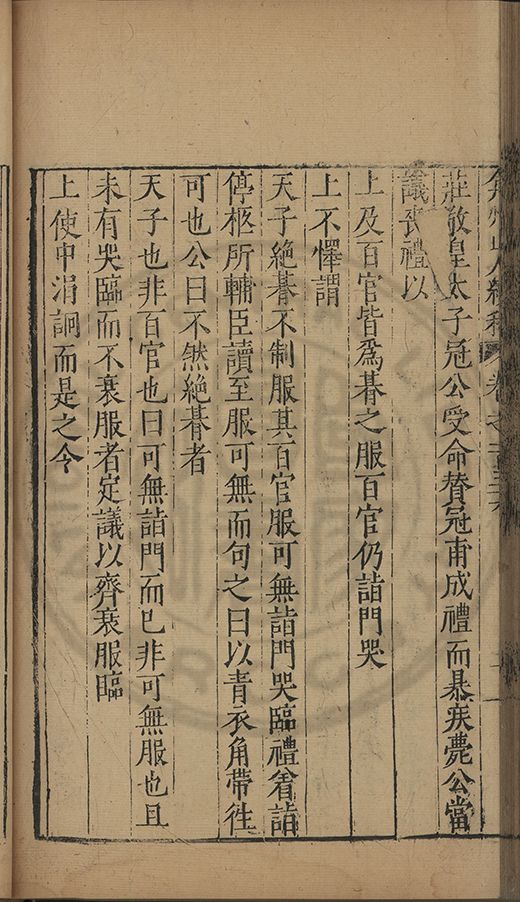 弇州山人續稿 卷之一百三十六
莊敬皇太子冠公受命贊冠甫成禮而暴疾薨公當
議喪禮以
上及百官皆爲朞之服百官仍詣門哭
上不懌謂
天子絶朞不制服其百官服可無詣門哭臨禮者詣
停柩所輔臣讀至服可無而句之曰以青衣角帶徃
可也公曰不然絶朞者
天子也非百官也曰可無詣門而已非可無服也且
未有哭臨而不衰服者定議以齊衰服臨
上使中涓詗而是之今